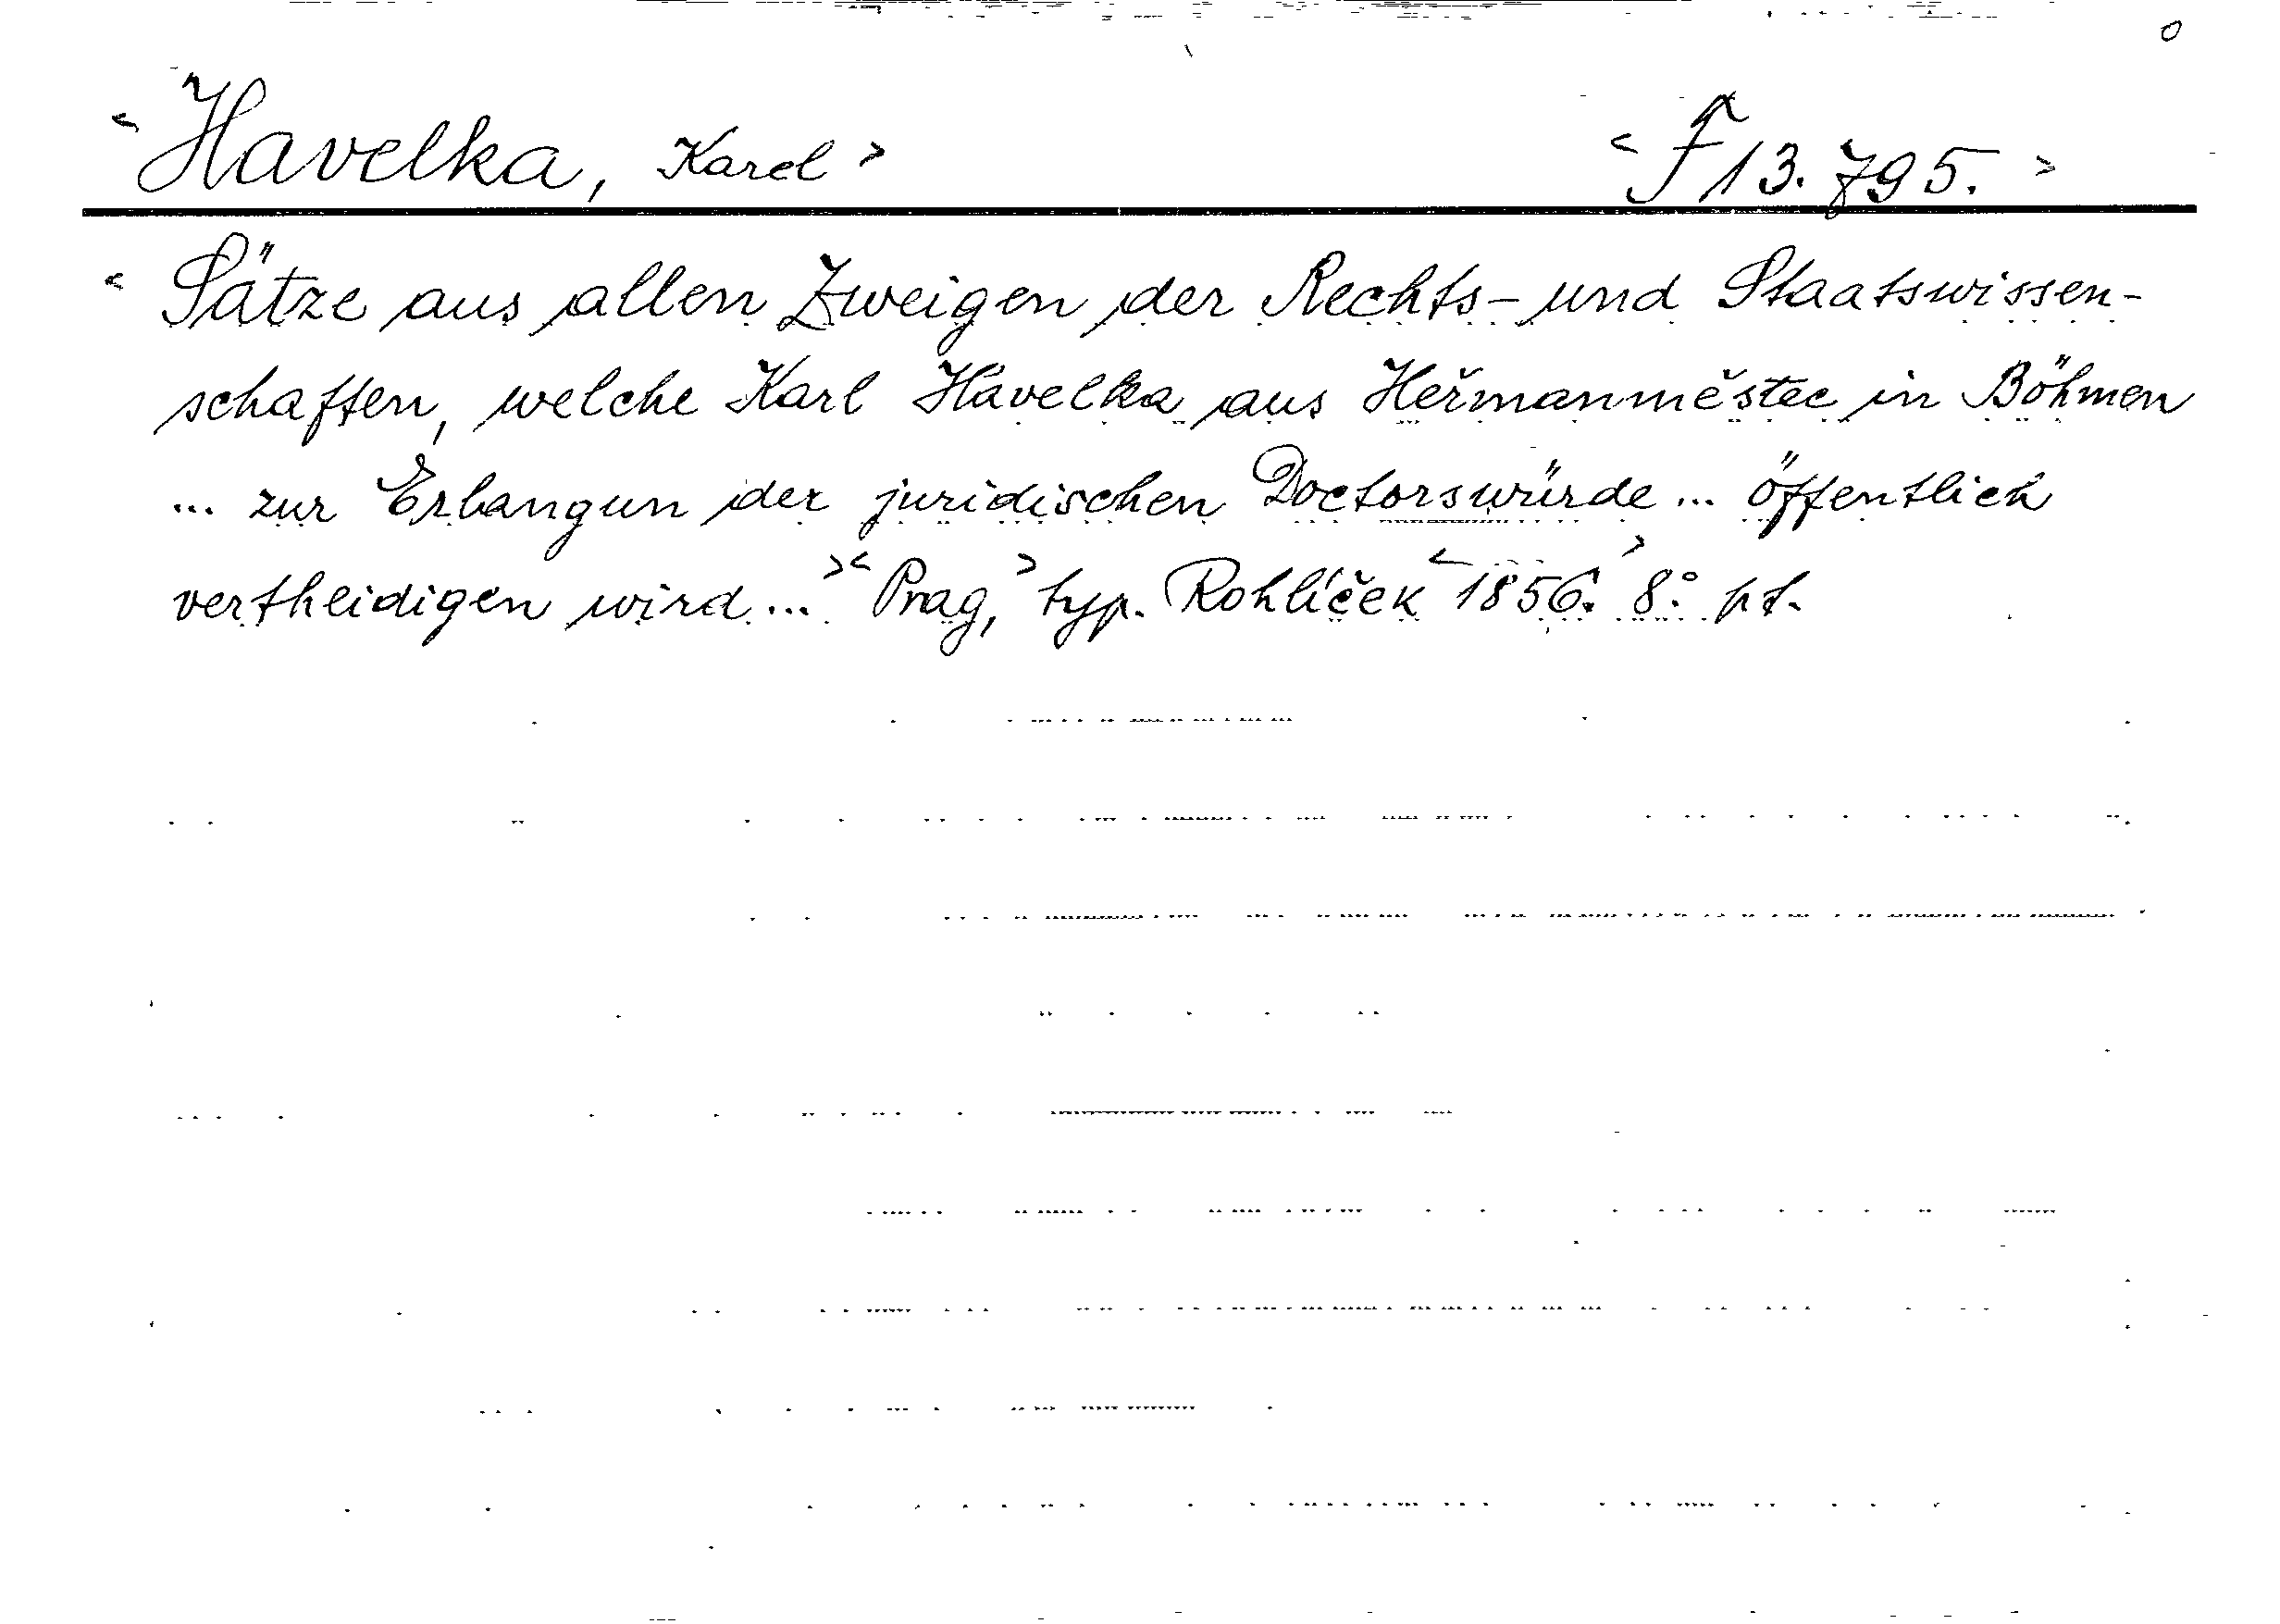 <Havelka, Karel> <F 13.795.>
<Sätze aus allen Zweigen der Rechts- und Staatswissen-
schaften, welche Karl Havelka aus Heřmanměstec in Böhmen
... zur Erlangun der juridischen Doctorswürde ... öffentlich
vertheidigen wird ...> <Prag,> typ. Rohlíček <1856.> 8° pt.